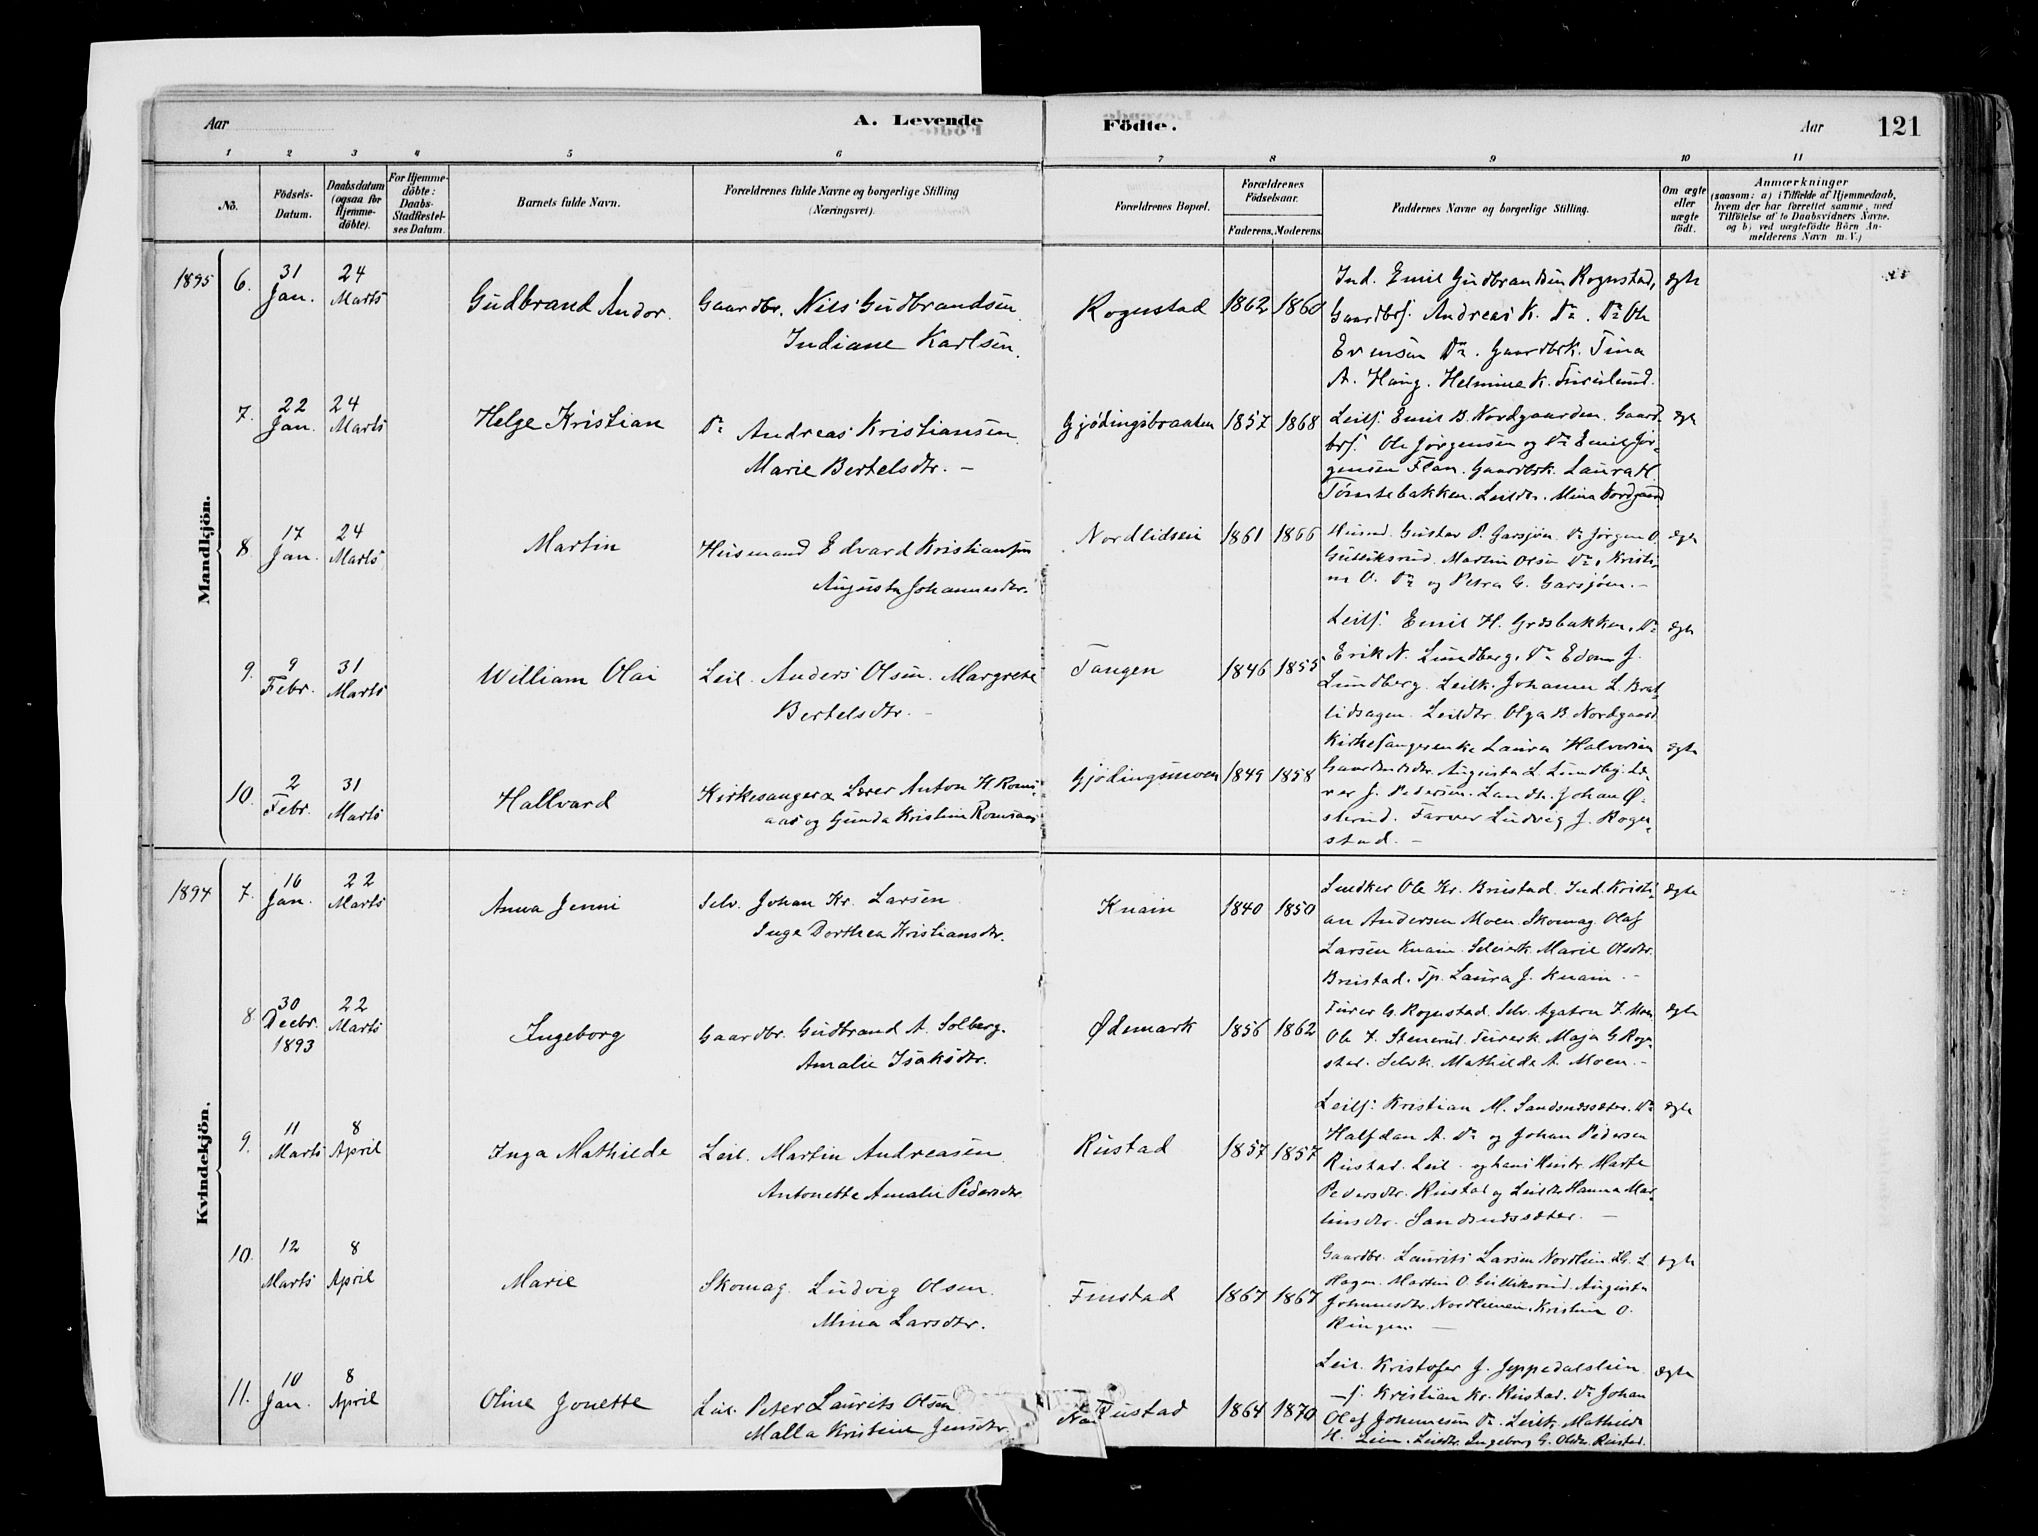 Aar
A. Levende
Födte.
Aar
121
1 2 3 4 5 6 7 8 9 10 11
No.
Födsels-Datum.
Daabsdatum (ogsaa for Hjemme-döbte).
For Hjemme-döbte: Daabs-Stadfæstel-ses Datum.
Barnets fulde Navn.
Forældrenes fulde Navne og borgerlige Stilling (Næringsvei).
Forældrenes Bopæl.
Forældrenes Födselsaar.
Faderens. Moderens.
Faddernes Navne og borgerlige Stilling.
Om ægte eller uægte födt.
Anmærkninger
(saasom: a) i Tilfælde af Hjemmedaab,
hvem der har forrettet samme, med
Tilföielse af to Daabsvidners Navne.
og b) ved uægtefödte Börn An-
melderens Navn m. V.)
Mandkjön.
1895 6. 31 Jan. 24 Marts Gudbrand Andor. Gaardbr. Nils Gudbrandsen
Indiane Karlsen.
Rognstad 1862 1860
Ind. Emil Gudbrandsen Rognstad, ægte
Gaardbrs. Andreas K. Do. Do Ole
Evensen Do. Gaardbrk. Tina
A. Haug. Helmine K.
7. 22 Jan. 24 Marts Helge Kristian Do Andreas Kristiansen
Marie Bertelsdtr. —
Gjødingsbraaten 1857 1868
Leils. Emil B. Nordgaarden. Gaard- ægte
brs. Ole Jørgensen og Do Emil Jør-
gensen Flan. Gaardbrk. Laura H.
Tømtebakken. Leildtr. Mina Nordgaard
8. 17 Jan. 24 Marts Martin Husmand Edvard Kristiansen
Augusta Johannesdtr.
Nordlideie 1861 1866
Husmd. Gustav P. Garsjøn. Do Jørgen O. ægte
Gulliksrud. Martin Olsen Do. Kristi-
ne O. Do og Petra G. Garsjøen. —
9. 9 Febr. 31 Marts William Olai Leil. Anders Olsen. Margrete
Bertelsdtr. —
Tangen 1846 1855
Leils. Emil H. Græsbakken. Do ægte
Erik N. Lundberg. Do Edvin J.
Lundberg. Leilk. Johanne L. Brat-
lidsagen. Leildtr. Olga B. Nordgaard.
10. 2 Febr. 31 Marts Hallvard Kirkesanger & Lærer Anton H. Roms-
aas og Gunda Kristine Romsaas
Gjødingsmoen 1849 1858
Kirkesangerenke Laura Halvorsen ægte
Augusta L. Lundby. Læ-
rer J. Pedersen. Landh. Johan Ø-
sterud. Farver Ludvig J. Rogn-
stad. —
Kvindekjön.
1894 7. 16 Jan. 22 Marts Anna Jenni Selv. Johan Kr. Larsen
Inge Dorthea Kristiansdtr.
Knain 1840 1850
Snedker Ole Kr. Brustad. Ind. Kristi- ægte
an Andersen Moen. Skomag Olaf
Larsen Knain. Marie Olsdtr.
Brustad. Tp. Laura J. Knain. —
8. 30 Decbr. 1893 22 Marts Ingeborg Gaardbr. Gudbrand A. Solberg.
Amalie Isaksdtr.
Ødemark 1856 1862
G. Rognstad. Selv. Agaton I. Moen ægte
Ole I. Stenerud. Maja G. Rogn-
stad. Selvk. Mathilde A. Moen. —
9. 11 Marts 8 April Inga Mathilde Leil. Martin Andreasen
Antonette Amalie Pedersdtr.
Rustad 1857 1857
Leils. Kristian M. Sandsnæssæter. Do ægte
Halfdan A. Do og Johan Pedersen
Rustad. Leil. og hans Hustr. Marte
Pedersdtr. Rustad og Leildtr. Hanna Mar-
tinsdtr. Sandsnæssæter. —
10. 12 Marts 8 April Marie Skomag. Ludvig Olsen.
Mina Larsdtr.
Finstad 1867 1867
Gaardbr. Laurits Larsen Nordlien. L. ægte
Hagen. Martin O. Gulliksrud. Augusta
Johannesdtr. Kristine O.
Ringen. —
11. 10 Jan. 8 April Oline Jonette Leil. Peter Laurits Olsen
Malla Kristine Jensdtr.
Rustad 1864 1870
Leil. Kristofer J. Jeppedalslien ægte
— s. Kristian Kr. Rustad. Do Johan
Olaf Johannesen Do. Leilk. Mathilde
H. Lien. Leildtr. Ingeborg G. Olsdtr. Rustad.